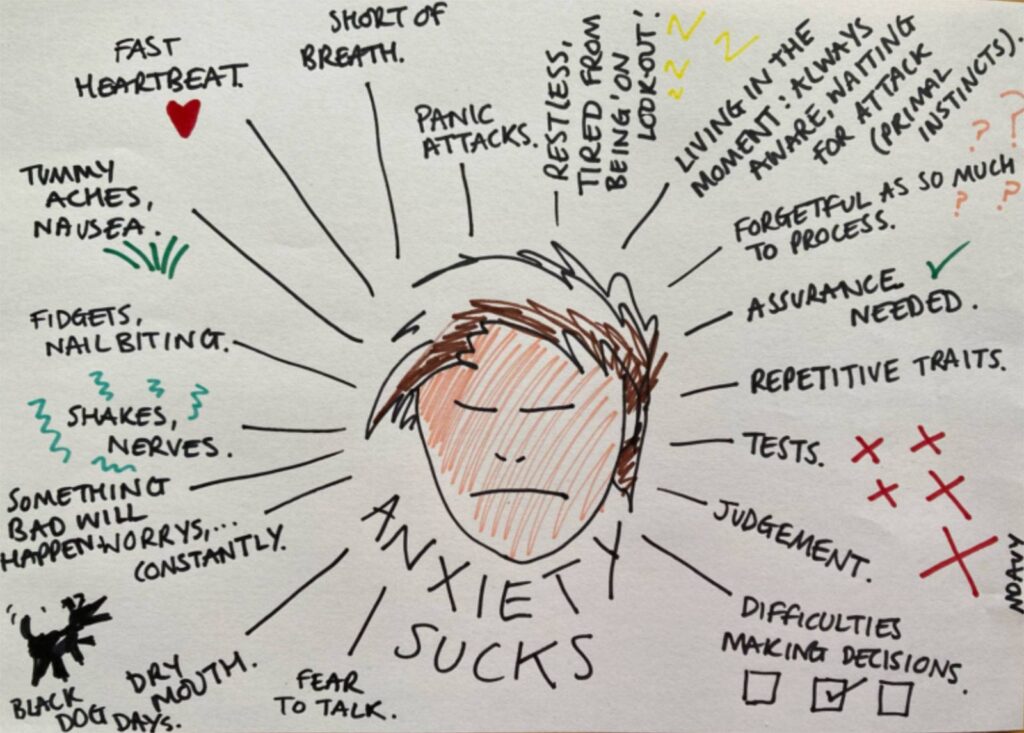 SHORT OF
BREATH.
FAST
HEARTBEAT.
PANIC
ATTACKS.
RESTLESS,
TIRED FROM
BEING 'ON
LOOKOUT'.
LIVING IN THE
MOMENT: ALWAYS
AWARE, WAITING
FOR ATTACK
(PRIMAL
INSTINCTS).
TUMMY
ACHES,
NAUSEA.
? ?
? ?
FORGETFUL AS SO MUCH
TO PROCESS.
ASSURANCE
NEEDED.
FIDGETS,
NAIL BITING.
REPETITIVE TRAITS.
SHAKES,
NERVES.
TESTS.
SOMETHING
BAD WILL
HAPPEN.WORRYS,...
CONSTANTLY.
JUDGEMENT.
NOAVY
DIFFICULTIES
MAKING DECISIONS.
ANXIETY
SUCKS
DRY
MOUTH.
BLACK
DOG DAYS.
FEAR
TO TALK.